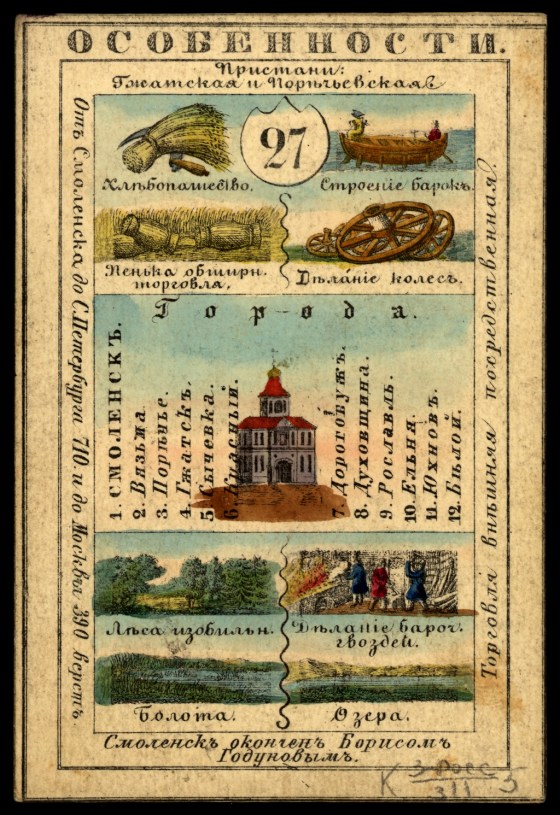 ОСОБЕННОСТИ.
Пристани:
Гжатская и Порѣчьевская.
27
Хлѣбопашество.
Строеніе барокъ.
Пенька обширн.
торговля.
Дѣланіе колесъ.
Города.
1. СМОЛЕНСКЪ.
2. Вязьма.
3. Порѣчье.
4. Гжатскъ.
5. Сычевка.
6. Красный.
7. Дорогобужъ.
8. Духовщина.
9. Рославль.
10. Ельня.
11. Юхновъ.
12. Бѣлой.
Лѣса изобильн.
Дѣланіе бароч.
гвоздей.
Болота.
Озера.
Смоленскъ оконченъ Борисомъ
Годуновымъ.
Отъ Смоленска до С. Петербурга 710. и до Москвы 390 верстъ.
Торговля внѣшняя посредственная.
К 3 росс 5
311